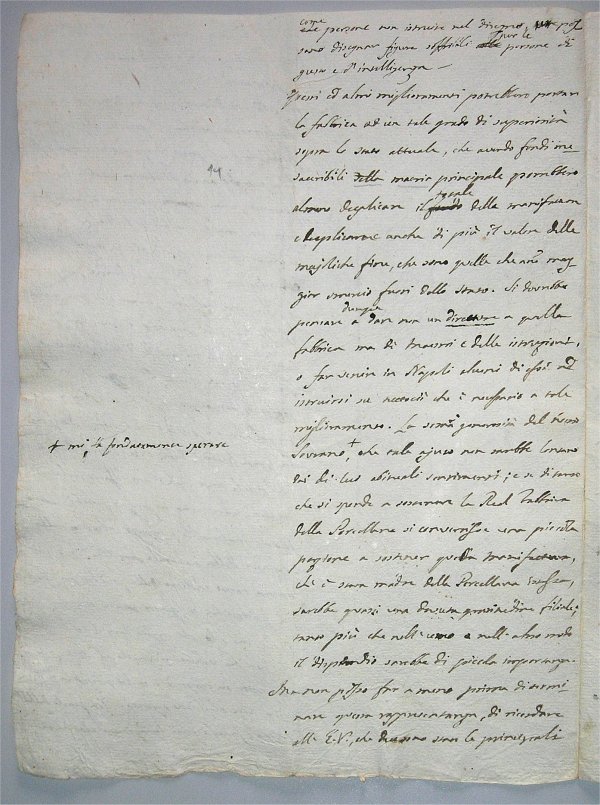 come
persone non istruite nel disegno, pos
sano disegnar figure soffribili per le persone di
gusto e d'intelligenza —
Questi ed altri miglioramenti potrebbero portare
la fabbrica ad un tale grado di superiorità
sopra lo stato attuale, che avendo fondi ine
sauribili della materia principale potrebbero
totale
almeno duplicare il della manifattura
e duplicarne anche di più il valore delle
majoliche fine, che sono quelle che anno mag
gior smercio fuori dello Stato. Si dovrebbe
dunque
pensare a dare non un direttore a quella
fabbrica ma di maestri e delle istruzioni,
o far venire in Napoli alcuni di essi ad
istruirsi su ciocchè che è necessario a tale
miglioramento. La somma generosità del nostro
Sovrano +, che tale ajuto non sarebbe lontano
dai di lui abituali sentimenti; e se di tanto
che si spende a sostenere la Real Fabbrica
della Porcellana si convertisse una piccola
porzione a sostener quella manifattura,
che è stata madre della Porcellana stessa,
sarebbe quasi una dovuta gratitudine filiale;
tanto più che nell'uno e nell'altro modo
il dispendio sarebbe di piccola importanza.
Ma non posso far a meno prima di termi
nare questa rappresentanza, di ricordare
alla E.V., che state le principali
+ mi fa fondatamente sperare
44